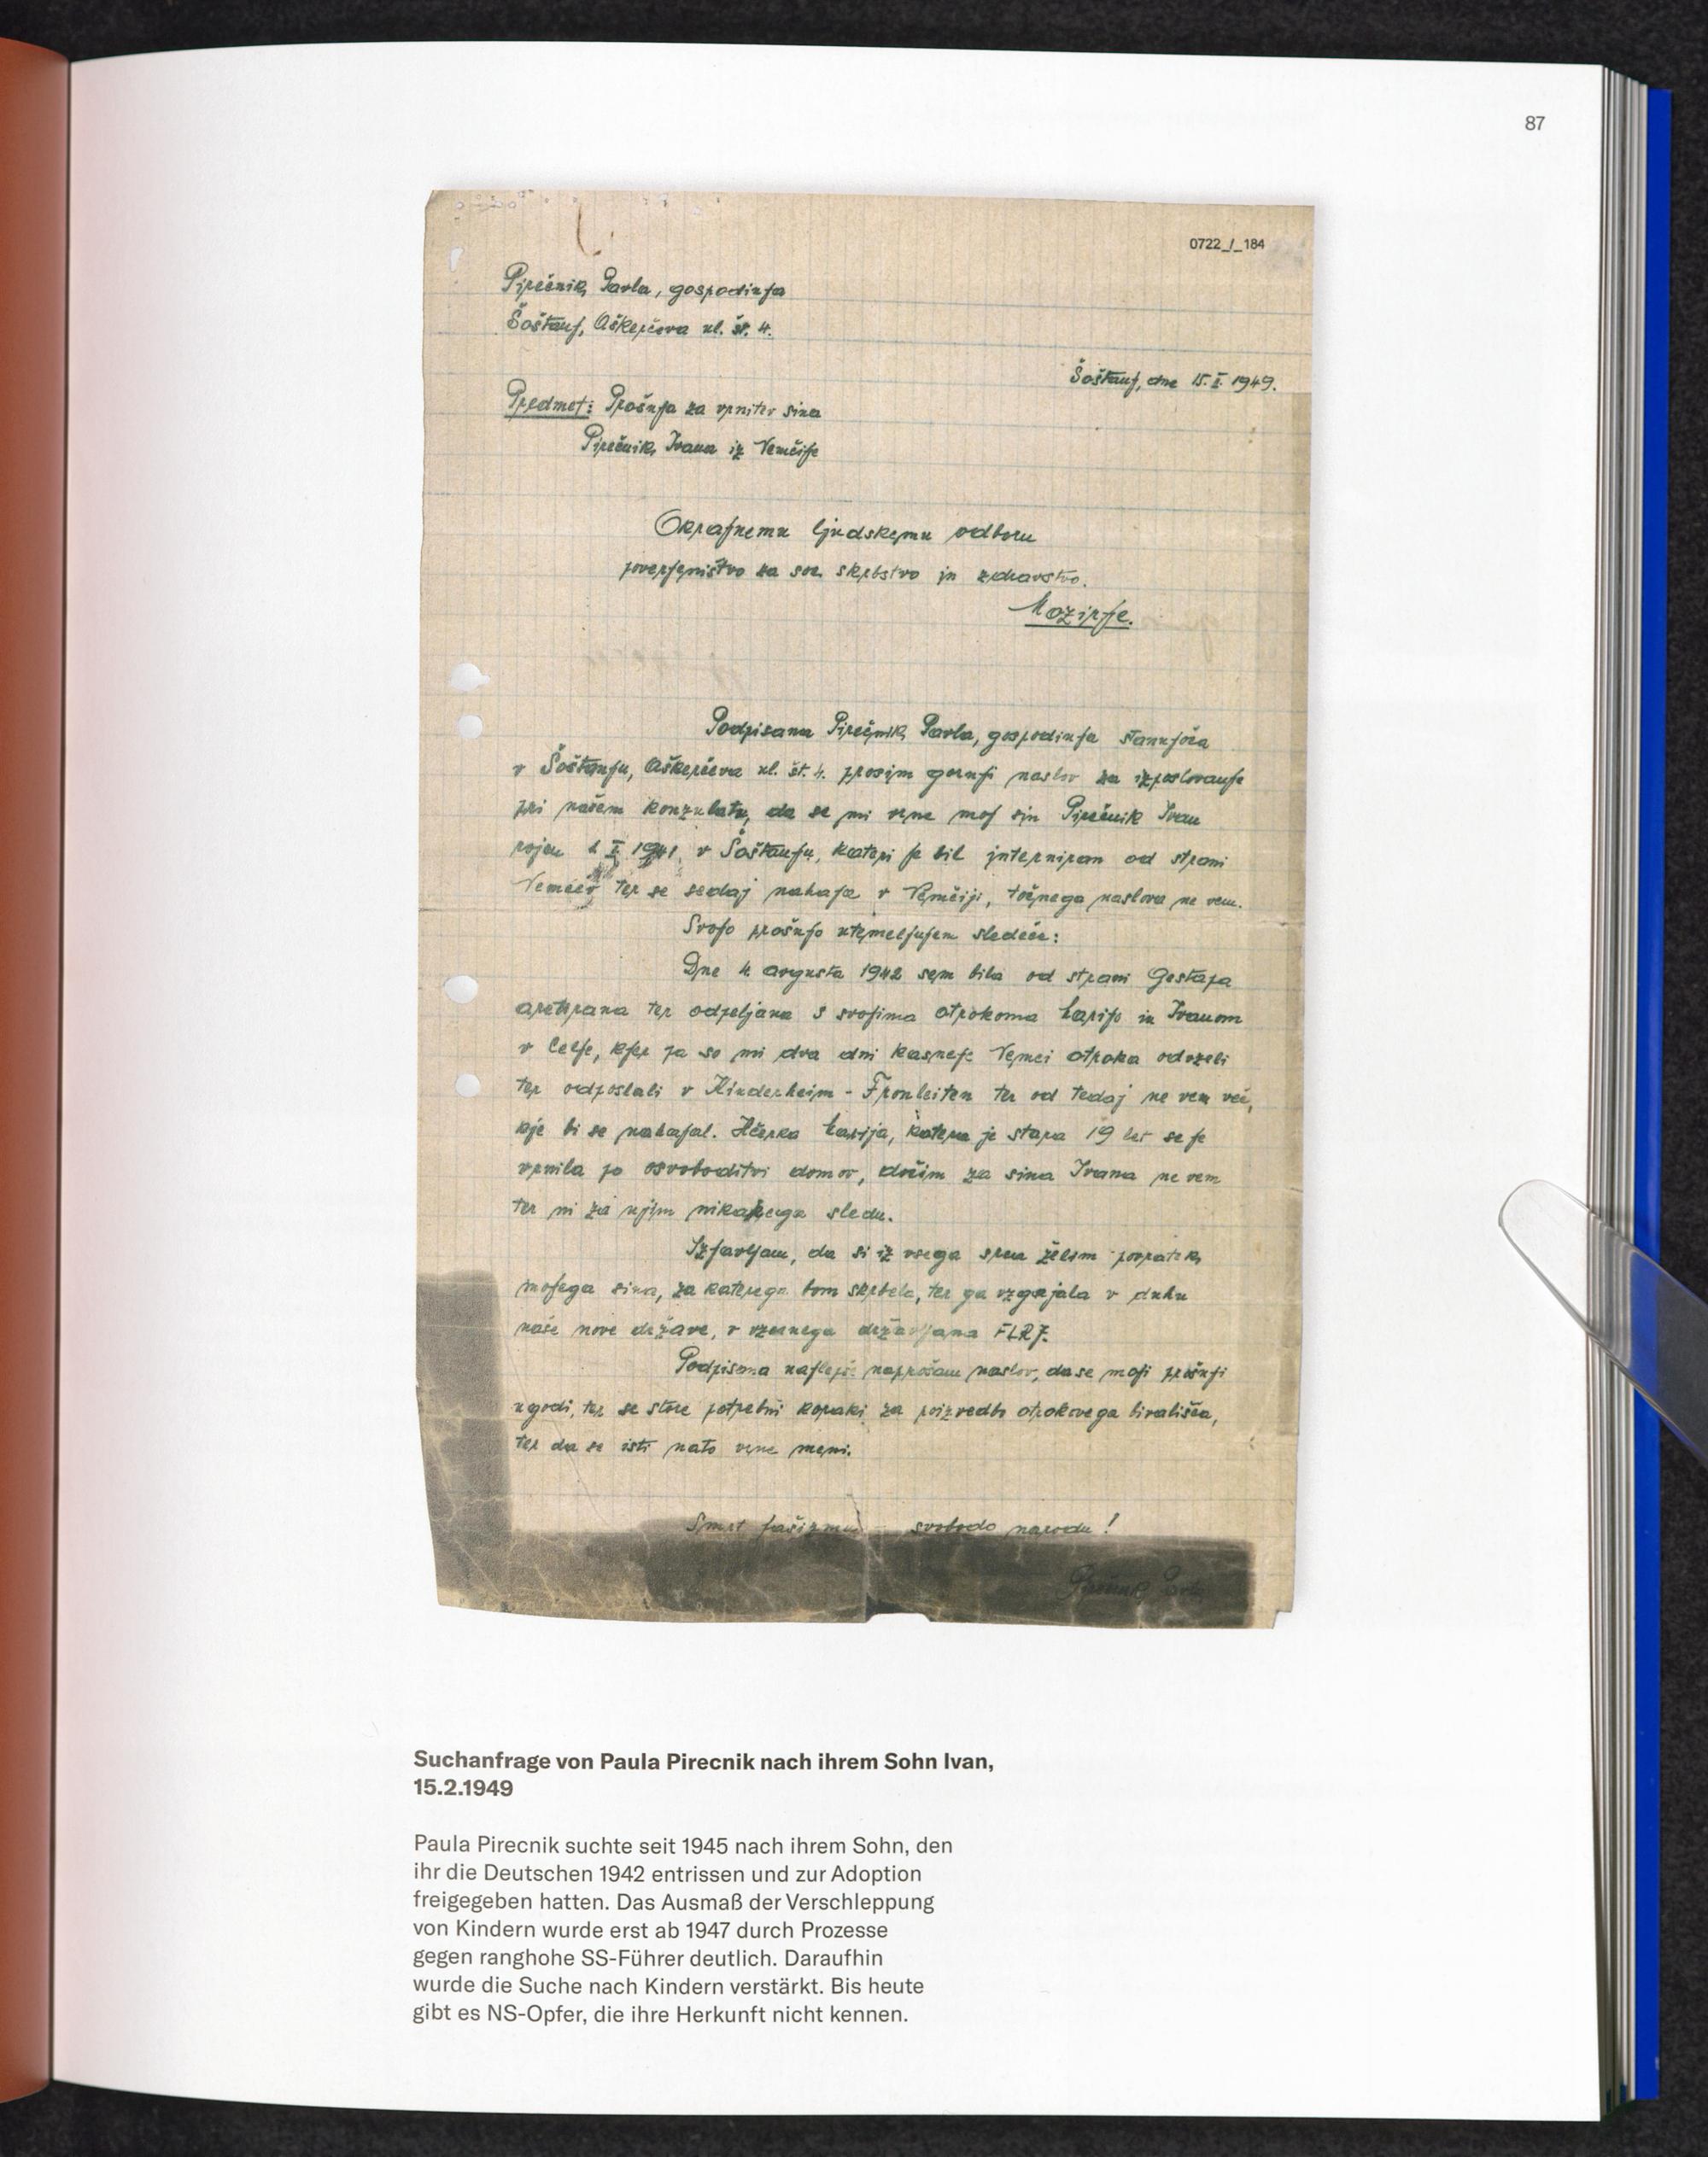 87
0722_/_184
Pirečnik Pavla, gospodinja
Šoštanj, Aškerčeva ul. št. 4.
Šoštanj, dne 15. II. 1949.
Predmet: Prošnja za vrnitev sina
Pirečnik Ivana iz Nemčije
Okrajnemu ljudskemu odboru
poverjeništvo za soc. skrbstvo in zdravstvo.
Mozirje.
Podpisana Pirečnik Pavla, gospodinja stanujoča
v Šoštanju, Aškerčeva ul. št. 4. prosim gornji naslov za izposlovanje
pri našem konzulatu, da se mi vrne moj sin Pirečnik Ivan
rojen 1941. v Šoštanju, kateri je bil interniran od strani
Nemcev ter se sedaj nahaja v Nemčiji, točnega naslova ne vem.
Svojo prošnjo utemeljujem sledeče:
Dne 4. avgusta 1942 sem bila od strani Gestapa
aretirana ter odpeljana s svojima otrokoma Marijo in Ivanom
v Celje, kjer pa so mi dva dni kasneje Nemci otroka odvzeli
ter odposlali v Kinderheim - Fronleiten ter od tedaj ne vem več,
kje bi se nahajal. Hčerka Marija, katera je stara 19 let se je
vrnila po osvoboditvi domov, dočim za sina Ivana ne vem
ter ni za njim nikakega sledu.
Izjavljam, da si iz vsega srca želim povratek
mojega sina, za katerega bom skrbela, ter ga vzgajala v duhu
naše nove države, v vzornega državljana FLRJ.
Podpisana najlepše naprošam naslov, da se moji prošnji
ugodi, ter se store potrebni koraki za poizvedbo otrokovega bivališča,
ter da se isti nato vrne meni.
Smrt fašizmu - svobodo narodu!
Pirečnik Pavla
Suchanfrage von Paula Pirecnik nach ihrem Sohn Ivan,
15.2.1949
Paula Pirecnik suchte seit 1945 nach ihrem Sohn, den
ihr die Deutschen 1942 entrissen und zur Adoption
freigegeben hatten. Das Ausmaß der Verschleppung
von Kindern wurde erst ab 1947 durch Prozesse
gegen ranghohe SS-Führer deutlich. Daraufhin
wurde die Suche nach Kindern verstärkt. Bis heute
gibt es NS-Opfer, die ihre Herkunft nicht kennen.